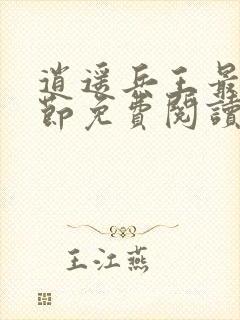 逍遥兵王最
節免費閱讀
王江燕